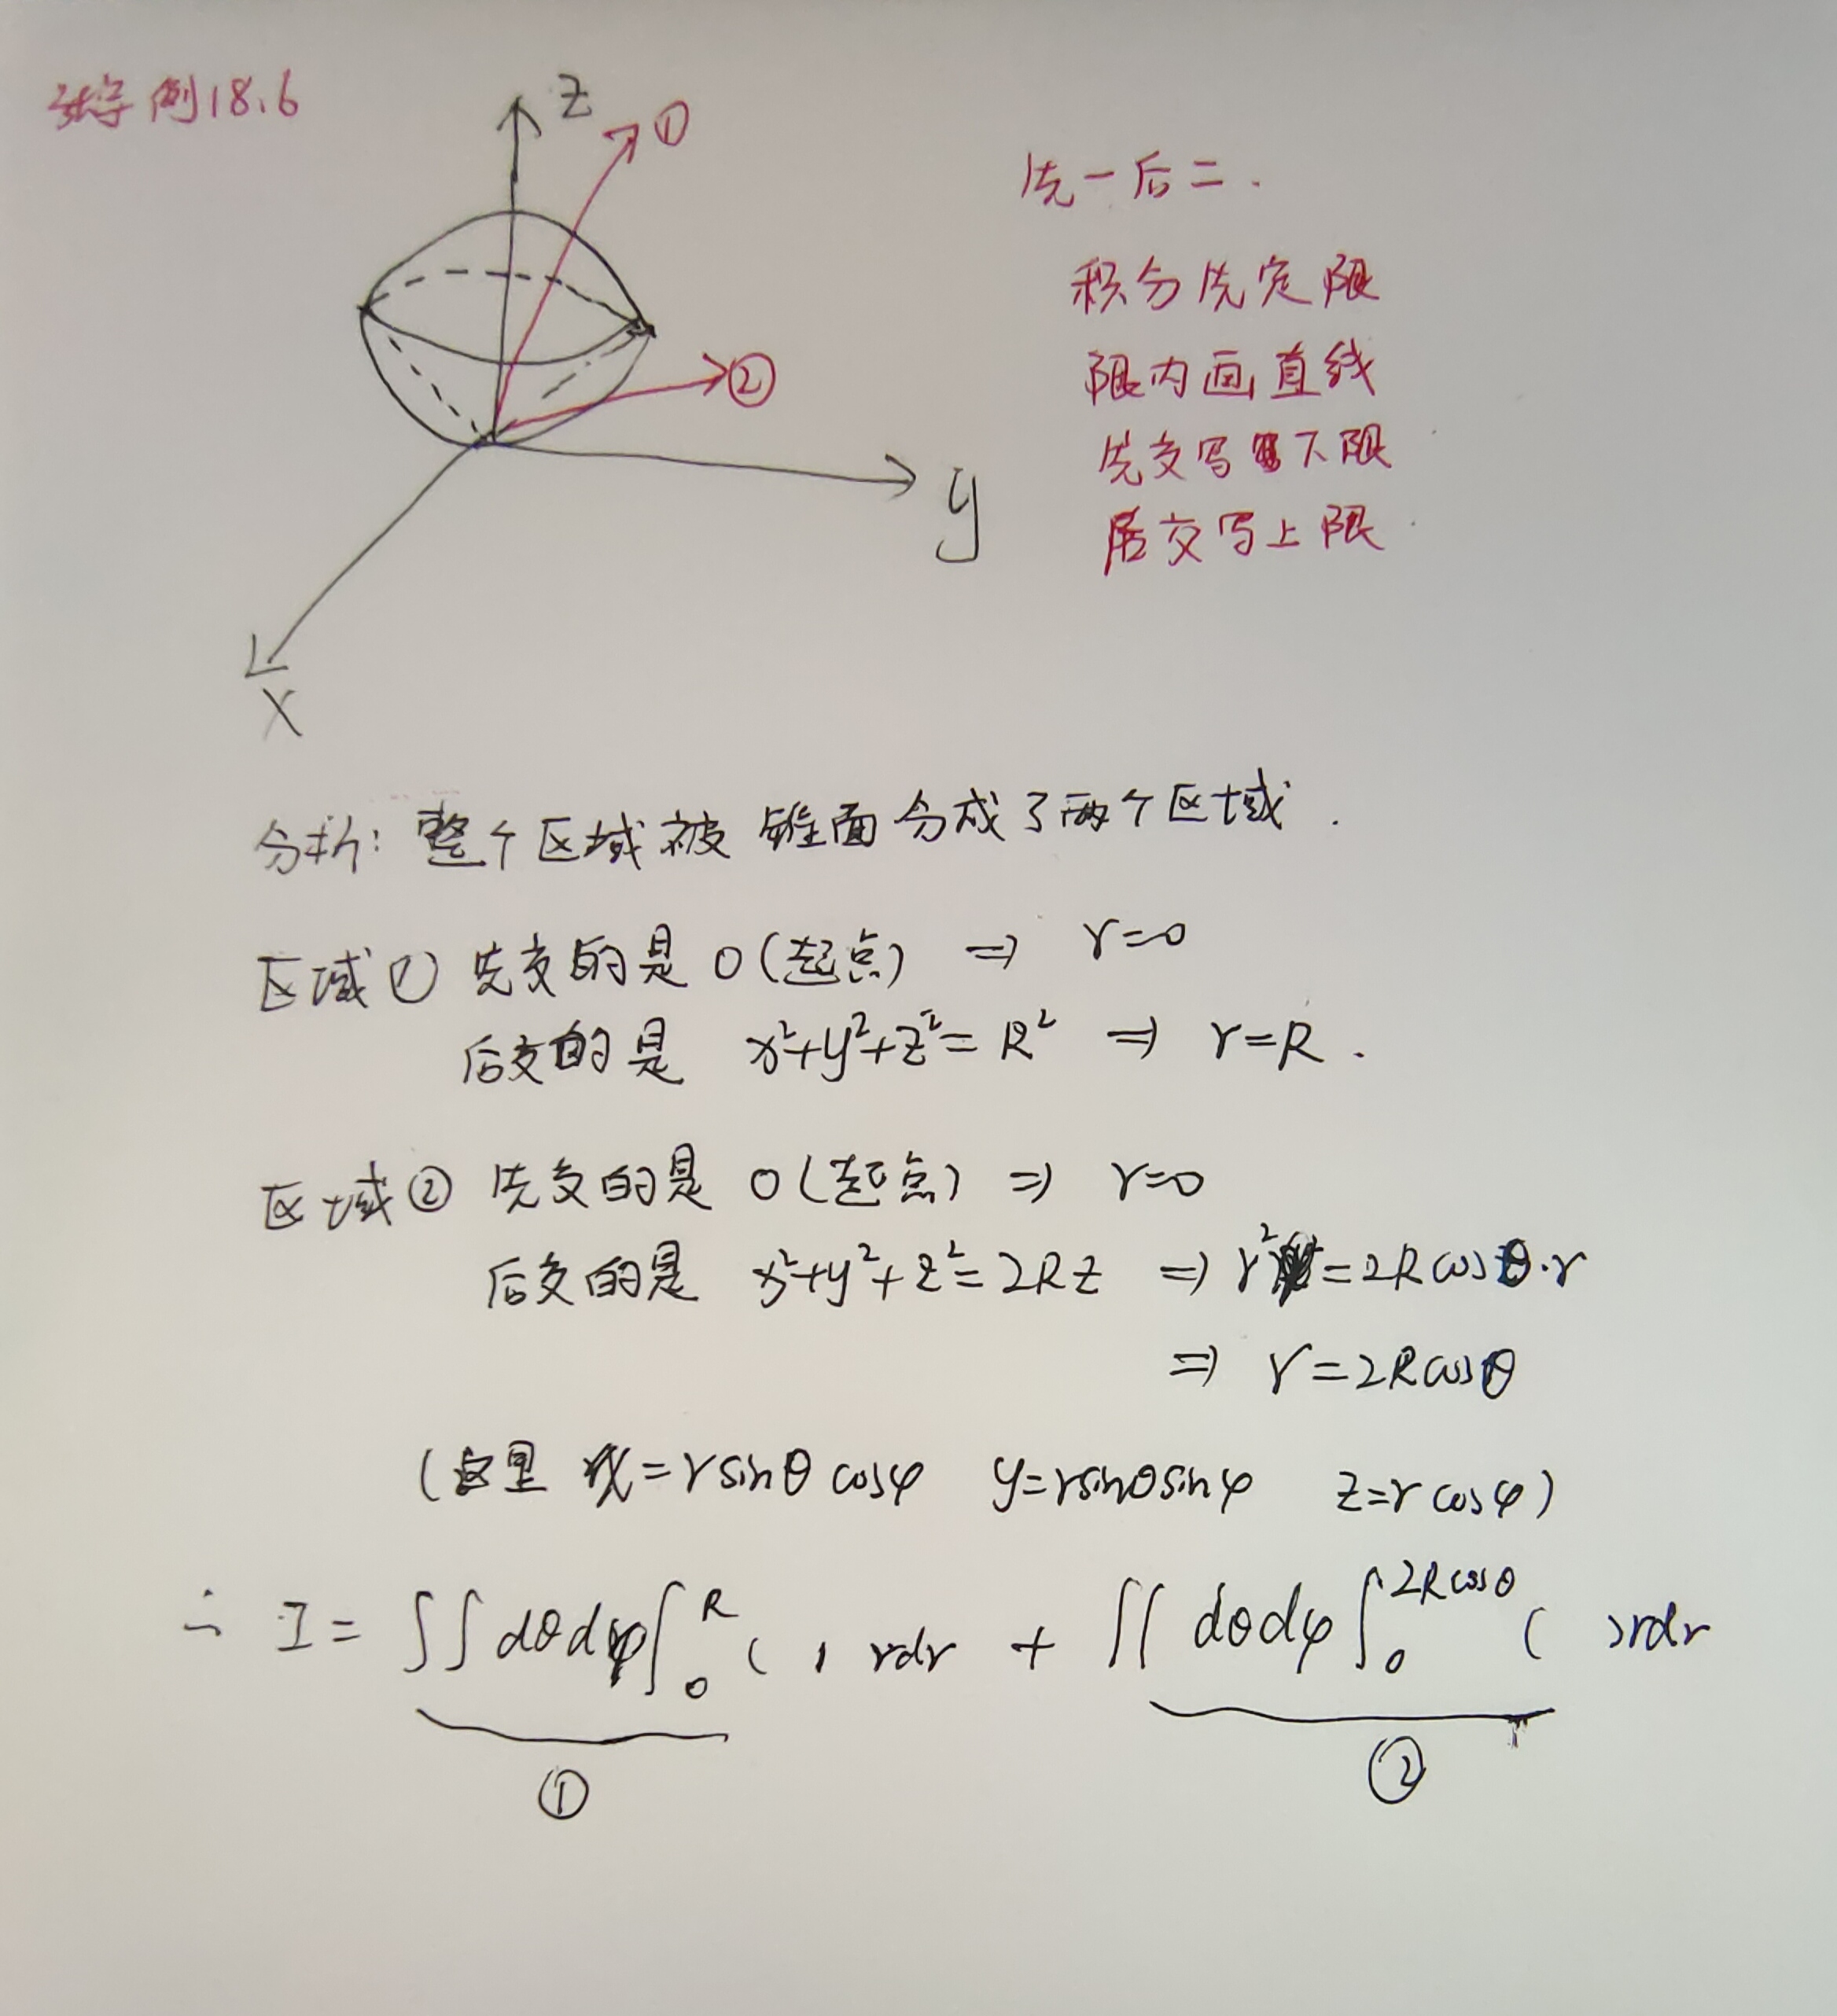 张宇例18.6
z
①
②
y
x
先一后二.
积分先定限
限内画直线
先交写下限
后交写上限
分析: 整个区域被锥面分成了两个区域.
区域① 先交的是 O(起点) ⇒ r=0
后交的是 x²+y²+z²=R² ⇒ r=R.
区域② 先交的是 O(起点) ⇒ r=0
后交的是 x²+y²+z²=2Rz ⇒ r²=2Rcosθ·r
⇒ r=2Rcosθ
(这里 x=rsinθcosφ y=rsinθsinφ z=rcosφ)
∴ I=∫∫dθdφ∫₀^R ( ) rdr + ∫∫dθdφ∫₀^{2Rcosθ} ( )rdr
① ②